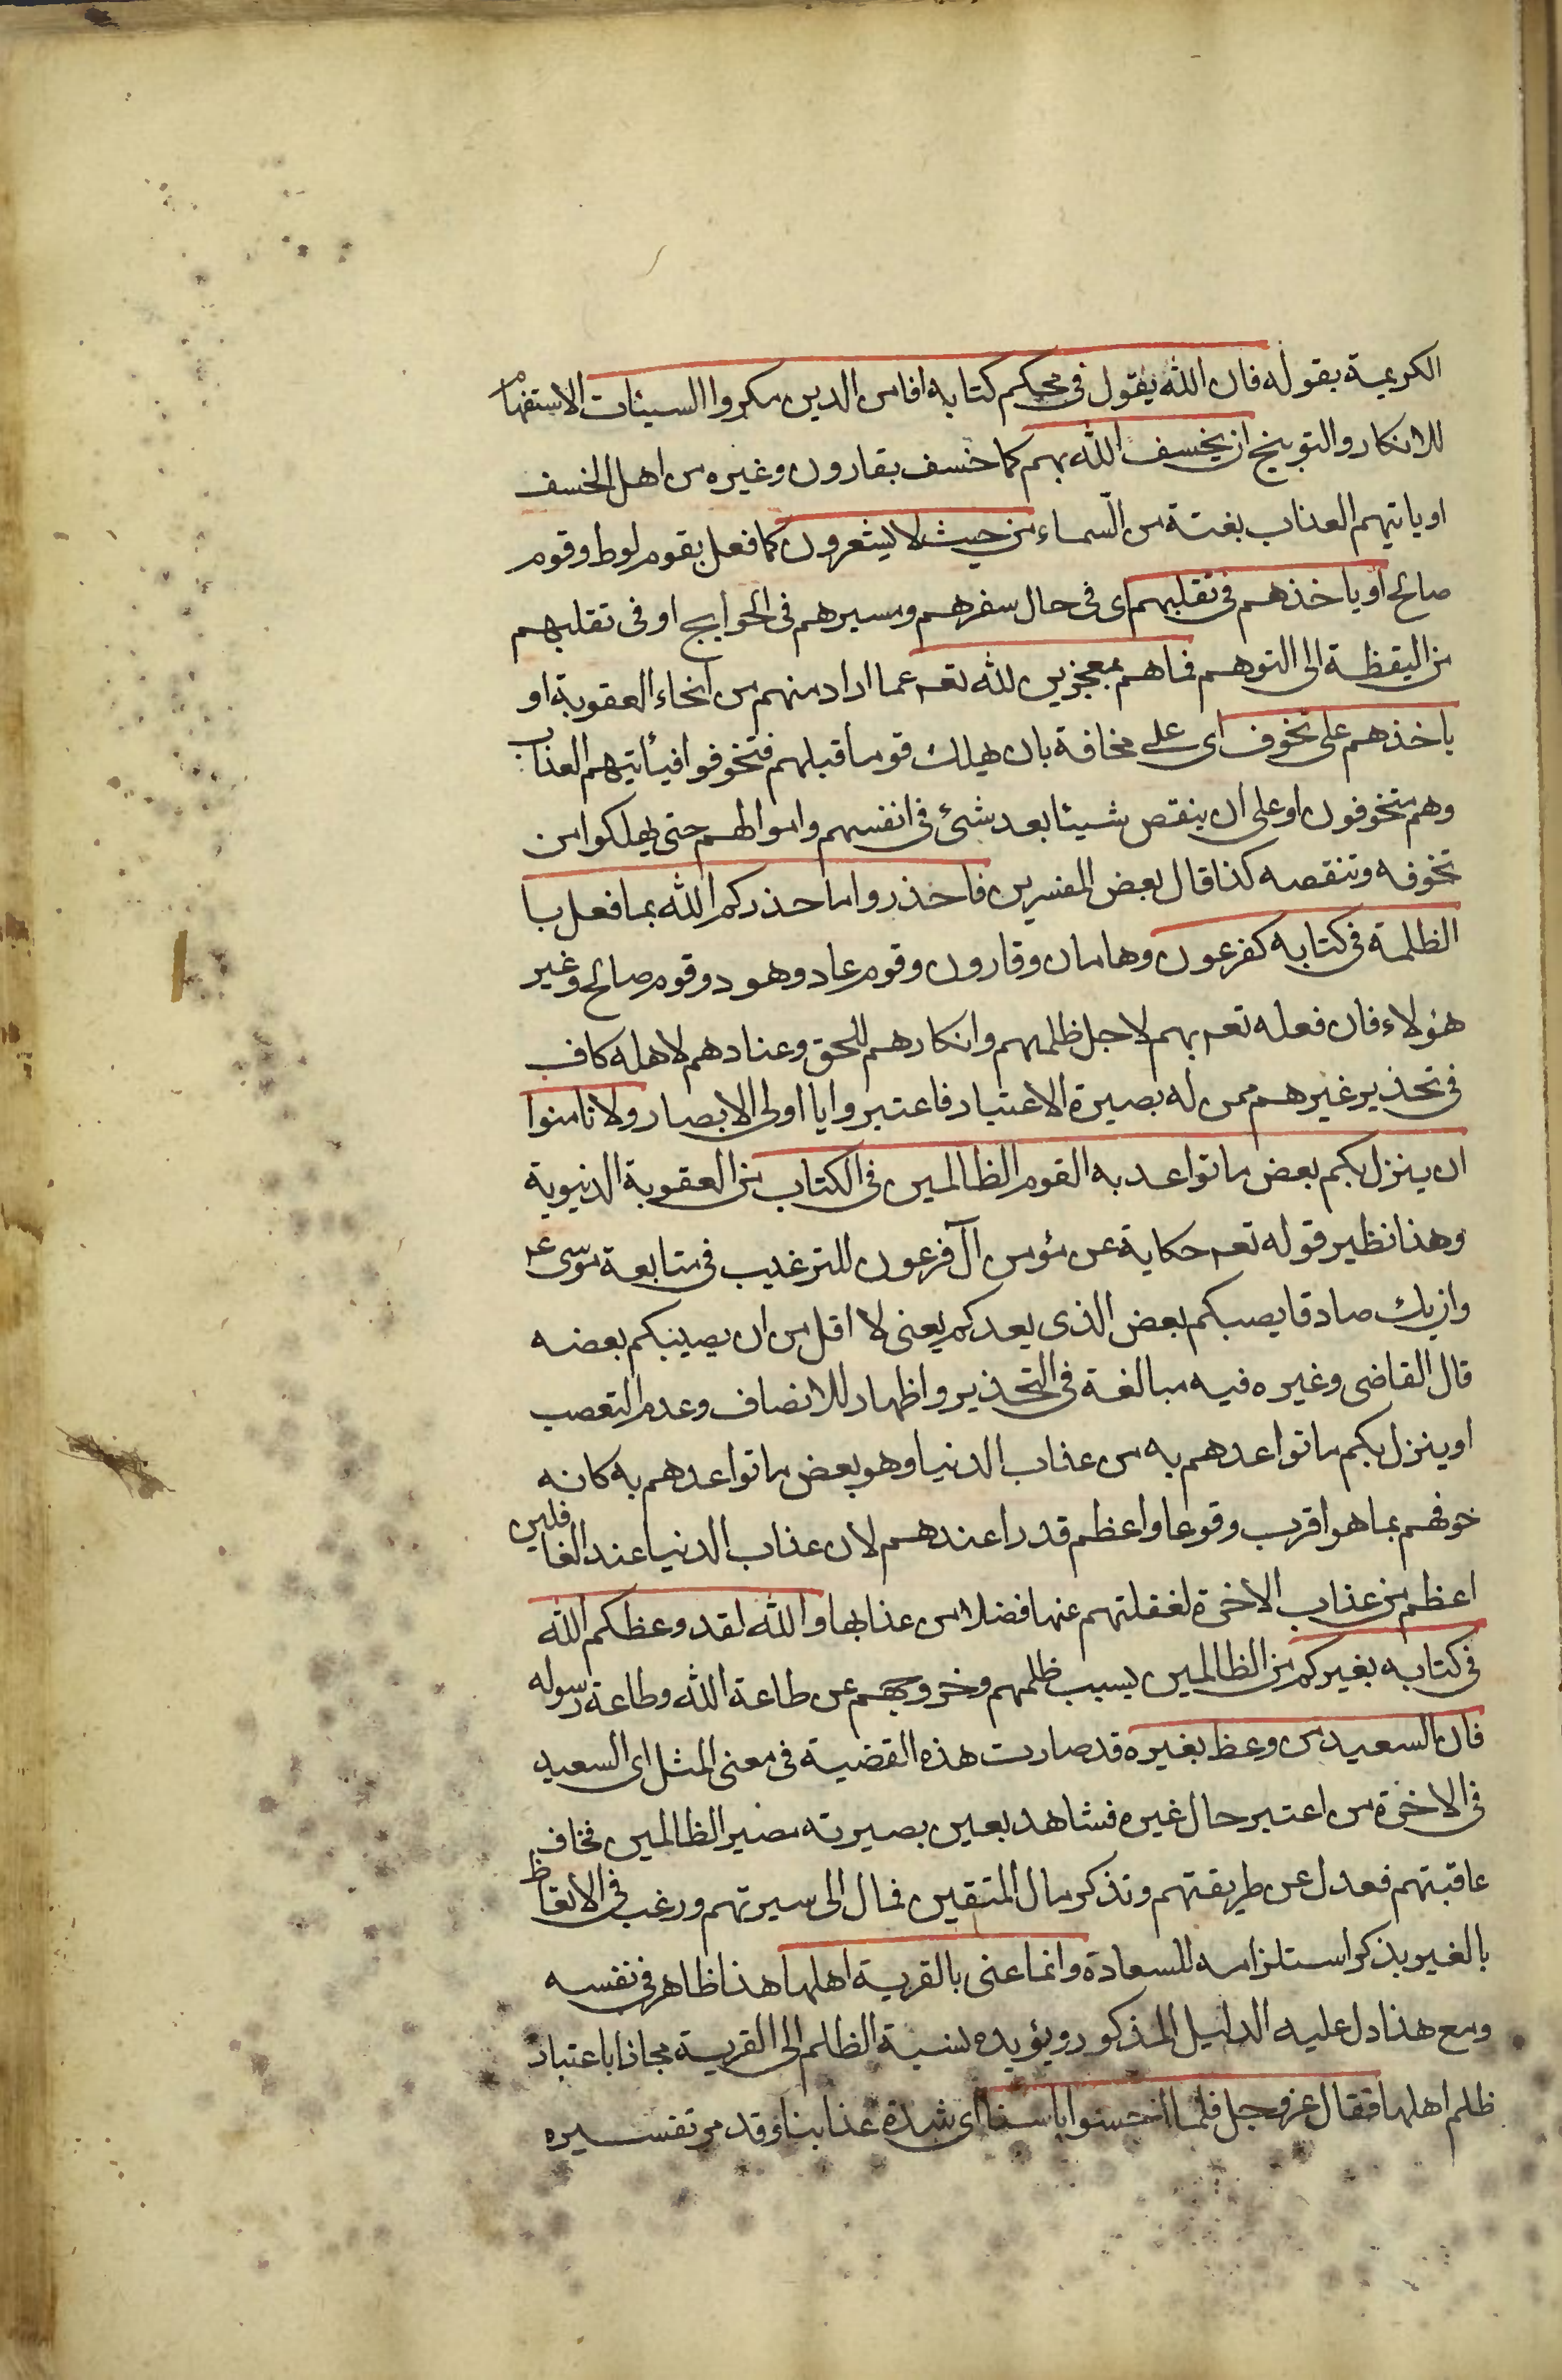 الكريمة بقوله فان الله يقول في محكم كتابه افامن الذين مكروا السيئات الاستفهام
للانكار والتوبيخ ان يخسف الله بهم كما خسف بقارون وغيره من اهل الخسف
او ياتيهم العذاب بغتة من السماء من حيث لا يشعرون كما فعل بقوم لوط وقوم
صالح او ياخذهم في تقلبهم اى فى حال سفرهم وسيرهم فى الحوايج او فى تقلبهم
من اليقظة الى النوم فما هم بمعجزين لله تعه عما اراد منهم من انحاء العقوبة او
ياخذهم على تخوف اى على مخافة بان يهلك قوما قبلهم فتخوفوا فيأتيهم العذاب
وهم متخوفون او على ان ينقص شيئا بعد شئ فى انفسهم واموالهم حتى يهلكوا من
تخوفه وتنقصه كذا قال بعض المفسرين فاحذروا ما حذركم الله بما فعل با
الظلمة فى كتابه كفرعون وهامان وقارون وقوم عاد وهود وقوم صالح وغير
هؤلاء فان فعله تعه بهم لاجل ظلمهم وانكارهم للحق وعنادهم لاهله كاف
فى تحذير غيرهم ممن له بصيرة الاعتبار فاعتبروا يا اولى الابصار ولا تامنوا
ان ينزل بكم بعض ما تواعد به القوم الظالمين فى الكتاب من العقوبة الدنيوية
وهذا نظير قوله تعه حكاية عن مؤمن آل فرعون للترغيب فى متابعة موسى عه
وان يك صادقا يصبكم بعض الذى يعدكم يعنى لا اقل من ان يصيبكم بعضه
قال القاضى وغيره فيه مبالغة فى التحذير واظهار للانصاف وعدم التعصب
او ينزل بكم ما تواعدهم به من عذاب الدنيا وهو بعض ما تواعدهم به كانه
خوفهم بما هو اقرب وقوعا واعظم قدرا عندهم لان عذاب الدنيا عند الغافلين
اعظم من عذاب الاخرة لغفلتهم عنها فضلا من عذابها والله لقد وعظكم الله
فى كتابه بغيركم من الظالمين بسبب ظلمهم وخروجهم عن طاعة الله وطاعة رسوله
فان السعيد من وعظ بغيره قد صارت هذه القضية فى معنى المثل اى السعيد
فى الاخرة من اعتبر حال غيره فشاهد بعين بصيرته مصير الظالمين فخاف
عاقبتهم فعدل عن طريقتهم وتذكر مال المتقين فمال الى سيرتهم ورغب فى الاتعاظ
بالغير بذكر استلزامه للسعادة وانما عنى بالقرية اهلها هذا ظاهر فى نفسه
ومع هذا دل عليه الدليل المذكور ويؤيده نسبة الظلم الى القرية مجازا باعتبار
ظلم اهلها فقال عز وجل فلما احسوا باسنا اى شدة عذابنا وقد مر تفسيره